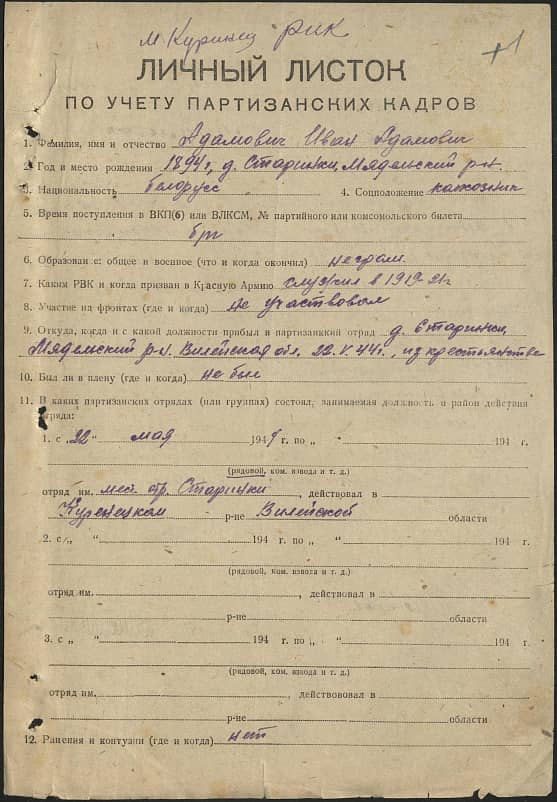 м Куринец РИК
+1
ЛИЧНЫЙ ЛИСТОК
ПО УЧЕТУ ПАРТИЗАНСКИХ КАДРОВ
1. Фамилия, имя и отчество Адамович Иван Адамович
2. Год и место рождения 1894 г, д. Старинки, Мядельский р-н.
3. Национальность белорусс 4. Соцположение колхозник
5. Время поступления в ВКП(б) или ВЛКСМ, № партийного или комсомольского билета
б/п
6. Образование: общее и военное (что и когда окончил) неграм.
7. Каким РВК и когда призван в Красную Армию служил в 1919-21 г
8. Участие на фронтах (где и когда) не участвовал
9. Откуда, когда и с какой должности прибыл в партизанский отряд д. Старинки,
Мядельский р-н. Вилейская обл. 22.V.44 г., из крестьянства
10. Был ли в плену (где и когда) не был
11. В каких партизанских отрядах (или группах) состоял, занимаемая должность и район действия
отряда:
1. с „22" мая 1944 г. по „ " 194 г.
(рядовой, ком. взвода и т. д.)
отряд им. мест. отр. Старинки, действовал в
Куренецком р-не Вилейской области
2. с „ " 194 г. по „ " 194 г.
(рядовой, ком. взвода и т. д.)
отряд им. , действовал в
р-не области
3. с „ " 194 г. по „ " 194 г.
(рядовой, ком. взвода и т. д.)
отряд им. , действововал в
р-не области
12. Ранения и контузии (где и когда) нет